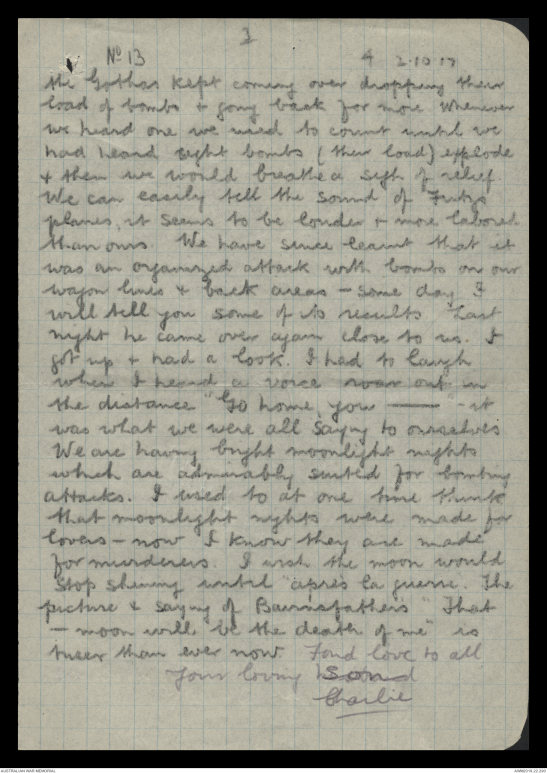 3
No 13 4 2.10.17
the Gothas kept coming over dropping their
load of bombs & going back for more whenever
we heard one we used to count until we
had heard eight bombs (their load) explode
& then we would breathe a sigh of relief.
We can easily tell the sound of Fritz's
planes, it seems to be louder & more labored
than ours. We have since learnt that it
was an organized attack with bombs on our
wagon lines & back areas – some day I
will tell you some of its results Last
night he came over again close to us. I
got up & had a look. I had to laugh
when I heard a voice roar out in
the distance "Go home, you ——" – it
was what we were all saying to ourselves
We are having bright moonlight nights
which are admirably suited for bombing
attacks. I used to at one time think
that moonlight nights were made for
lovers – now I know they are made
for murderers. I wish the moon would
stop shining until "apres la guerre. The
picture & saying of Bairnsfather's "That
– moon will be the death of me" is
truer than ever now Fond love to all
Your loving Son
Charlie
AUSTRALIAN WAR MEMORIAL